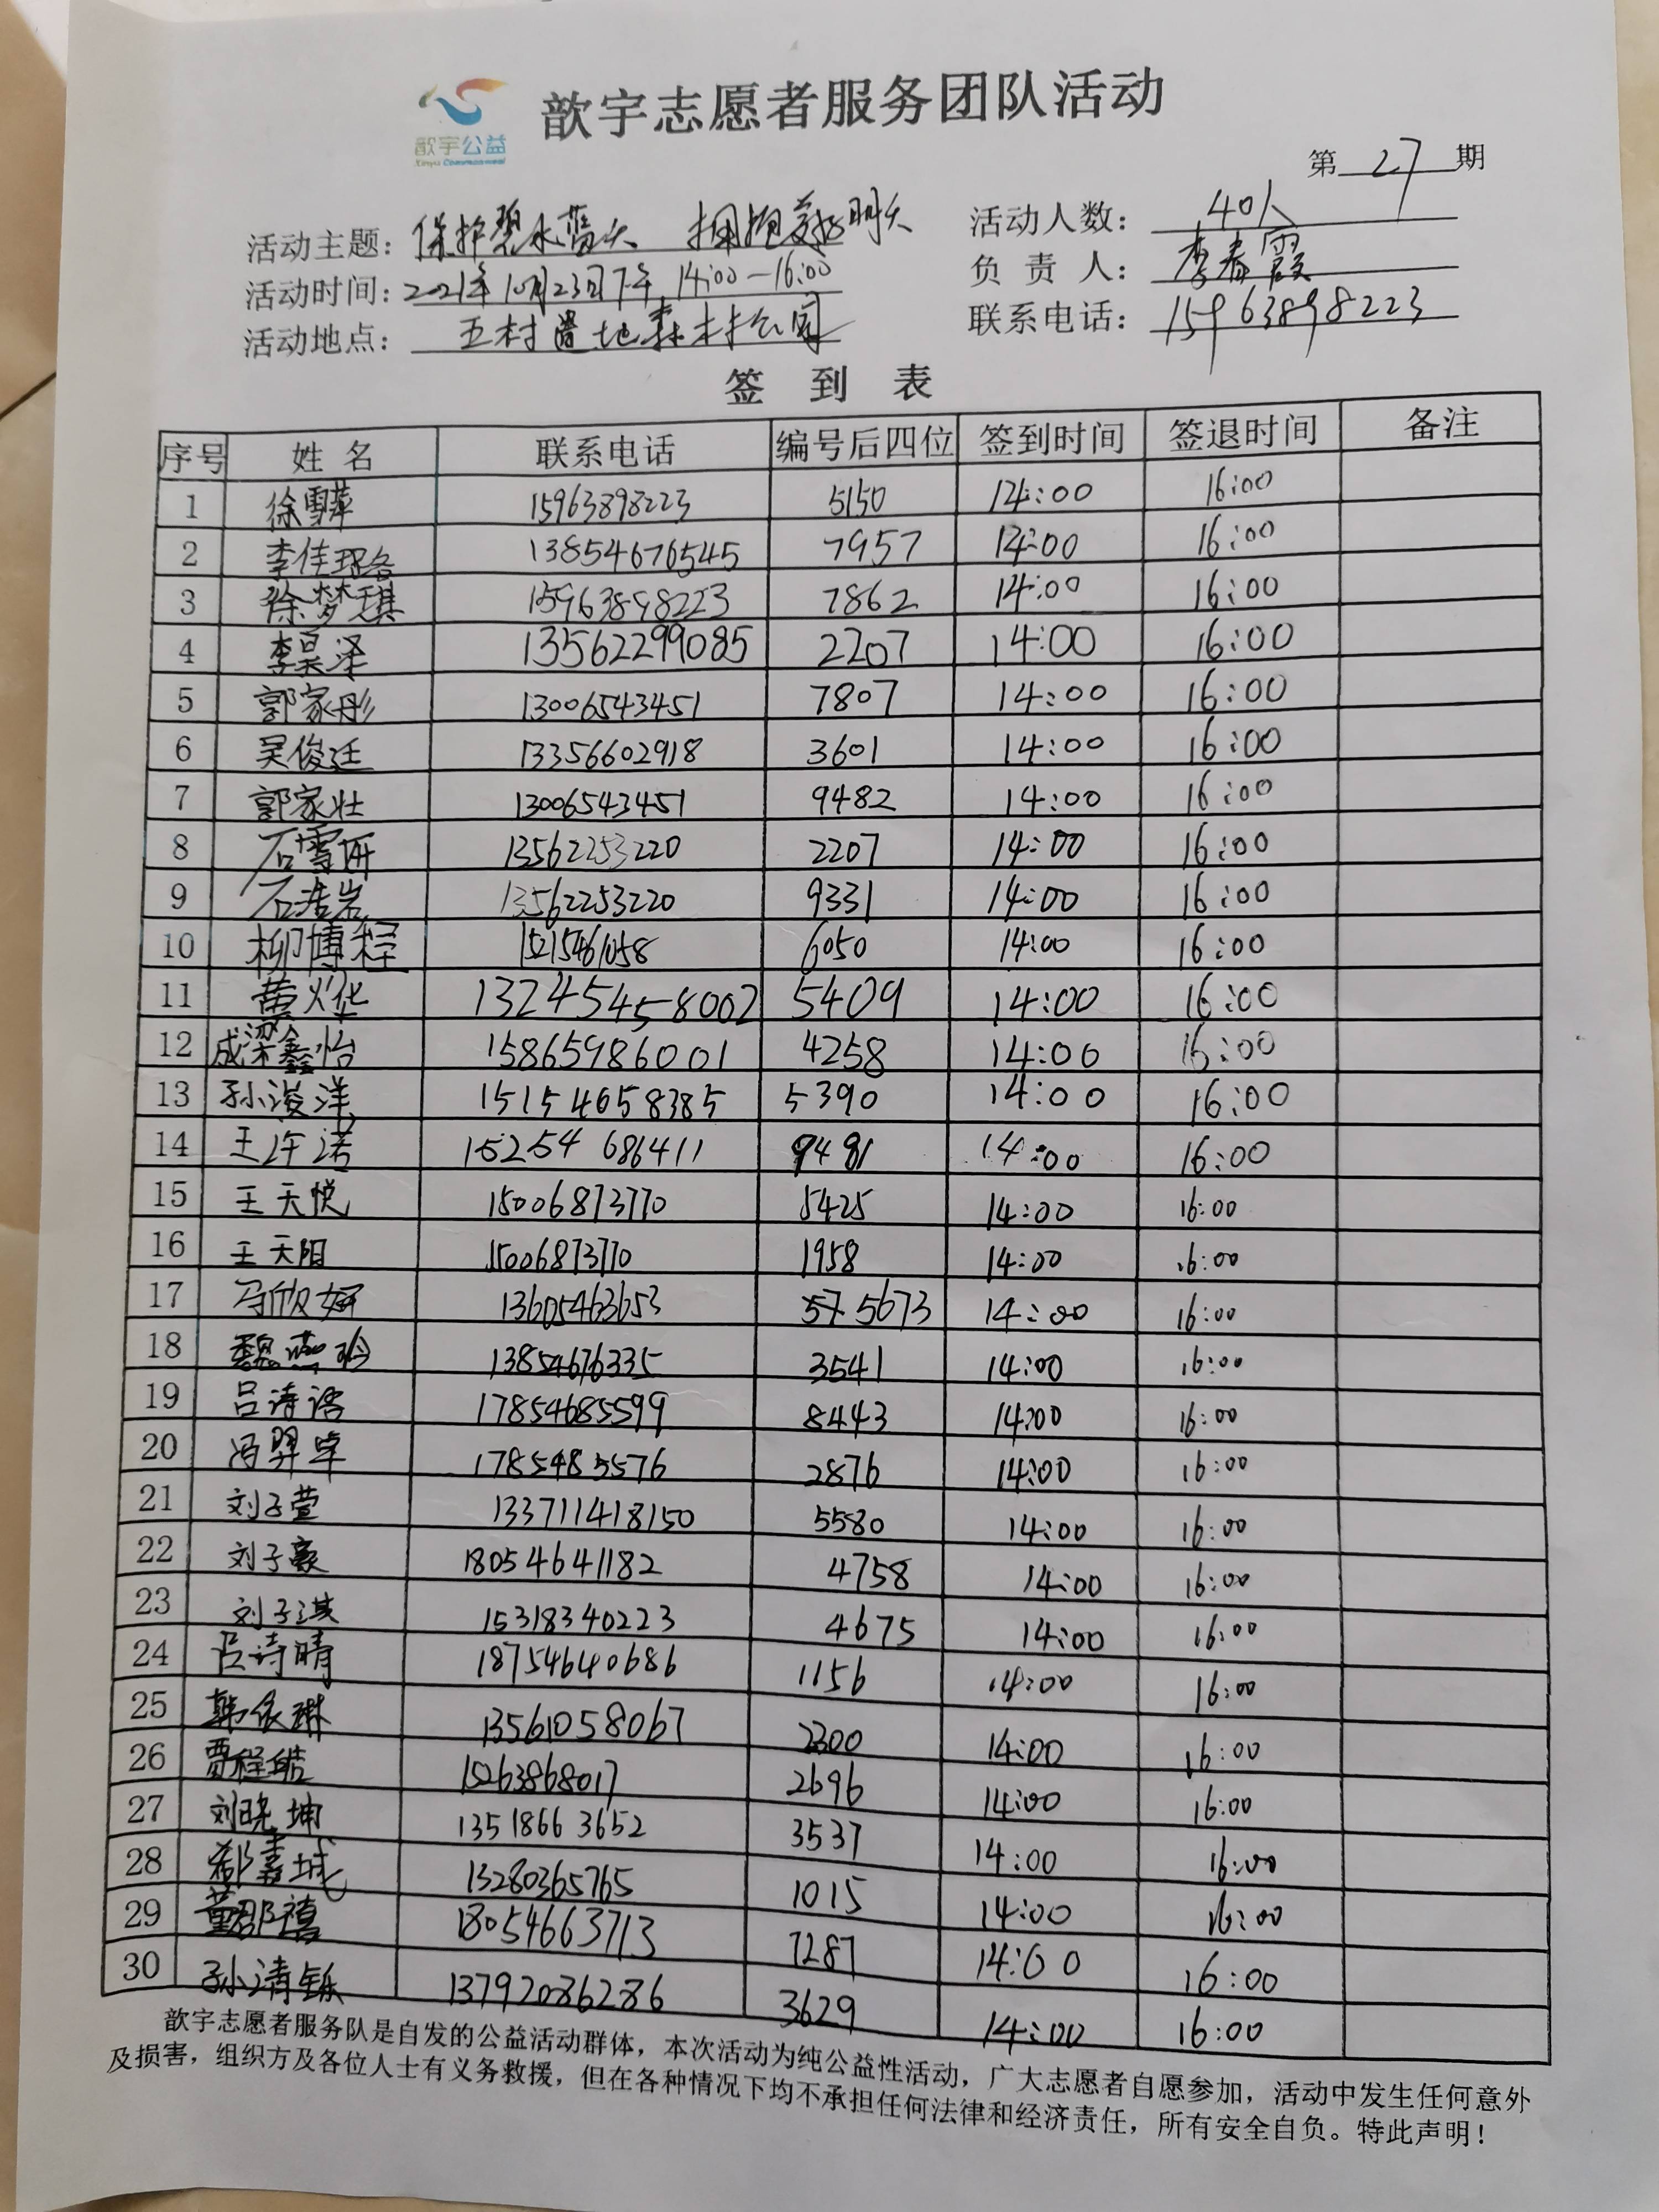 歆宇公益
Xinyu Commonweal
歆宇志愿者服务团队活动
第 27 期
活动主题：保护碧水蓝天 拥抱美好明天
活动人数：40人
活动时间：2021年10月23日下午 14:00—16:00
负责人：李春霞
活动地点：五村湿地森林公园
联系电话：15963898223
签到表
序号 姓名 联系电话 编号后四位 签到时间 签退时间 备注
1 徐雪萍 15963898223 5150 14:00 16:00
2 李佳珞 13854676545 7957 14:00 16:00
3 徐梦琪 15963898223 7862 14:00 16:00
4 李昊泽 13562299085 2207 14:00 16:00
5 郭家彤 13006543451 7807 14:00 16:00
6 吴俊廷 13356602918 3601 14:00 16:00
7 郭家壮 13006543451 9482 14:00 16:00
8 石雪妍 13562253220 2207 14:00 16:00
9 石浩岩 13562253220 9331 14:00 16:00
10 柳博程 15215461058 6050 14:00 16:00
11 黄火华 13245458002 5409 14:00 16:00
12 成梁鑫怡 15865986001 4258 14:00 16:00
13 孙浚洋 15154658385 5390 14:00 16:00
14 王许诺 15254686411 9481 14:00 16:00
15 王天悦 15006873770 5425 14:00 16:00
16 王天阳 15006873770 1958 14:00 16:00
17 马欣妍 13605463653 5673 14:00 16:00
18 魏燕玲 13854676335 3541 14:00 16:00
19 吕诗语 17854685599 8443 14:00 16:00
20 冯羿卓 1785485576 2876 14:00 16:00
21 刘子萱 133711418150 5580 14:00 16:00
22 刘子豪 18054641182 4758 14:00 16:00
23 刘子淇 15318340223 4675 14:00 16:00
24 吕诗晴 18754640686 1156 14:00 16:00
25 韩依琳 13561058067 2300 14:00 16:00
26 贾程皓 15263868017 2696 14:00 16:00
27 刘晓坤 13518663652 3537 14:00 16:00
28 郗嘉城 13280365765 1015 14:00 16:00
29 董郡禧 18054663713 7287 14:00 16:00
30 孙清铄 13792086286 3629 14:00 16:00
歆宇志愿者服务队是自发的公益活动群体，本次活动为纯公益性活动，广大志愿者自愿参加，活动中发生任何意外
及损害，组织方及各位人士有义务救援，但在各种情况下均不承担任何法律和经济责任，所有安全自负。特此声明！